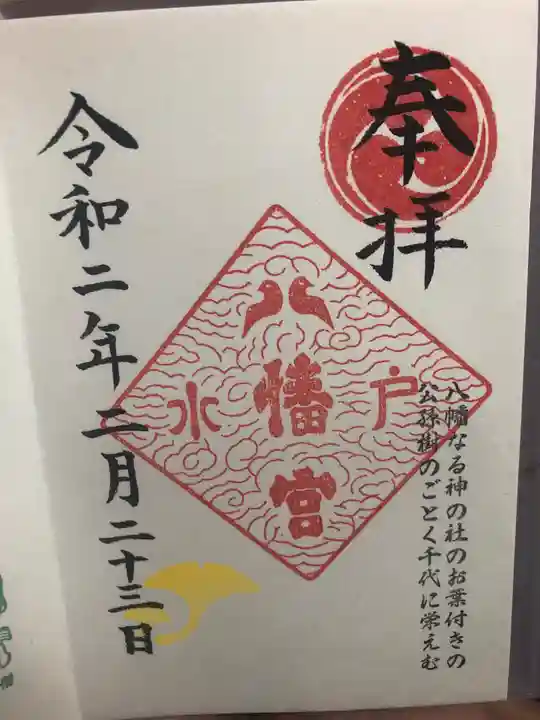 奉拝
八幡なる神の社のお葉付きの
公孫樹のごとく千代に栄えむ
八幡宮
水戸
令和二年二月二十三日